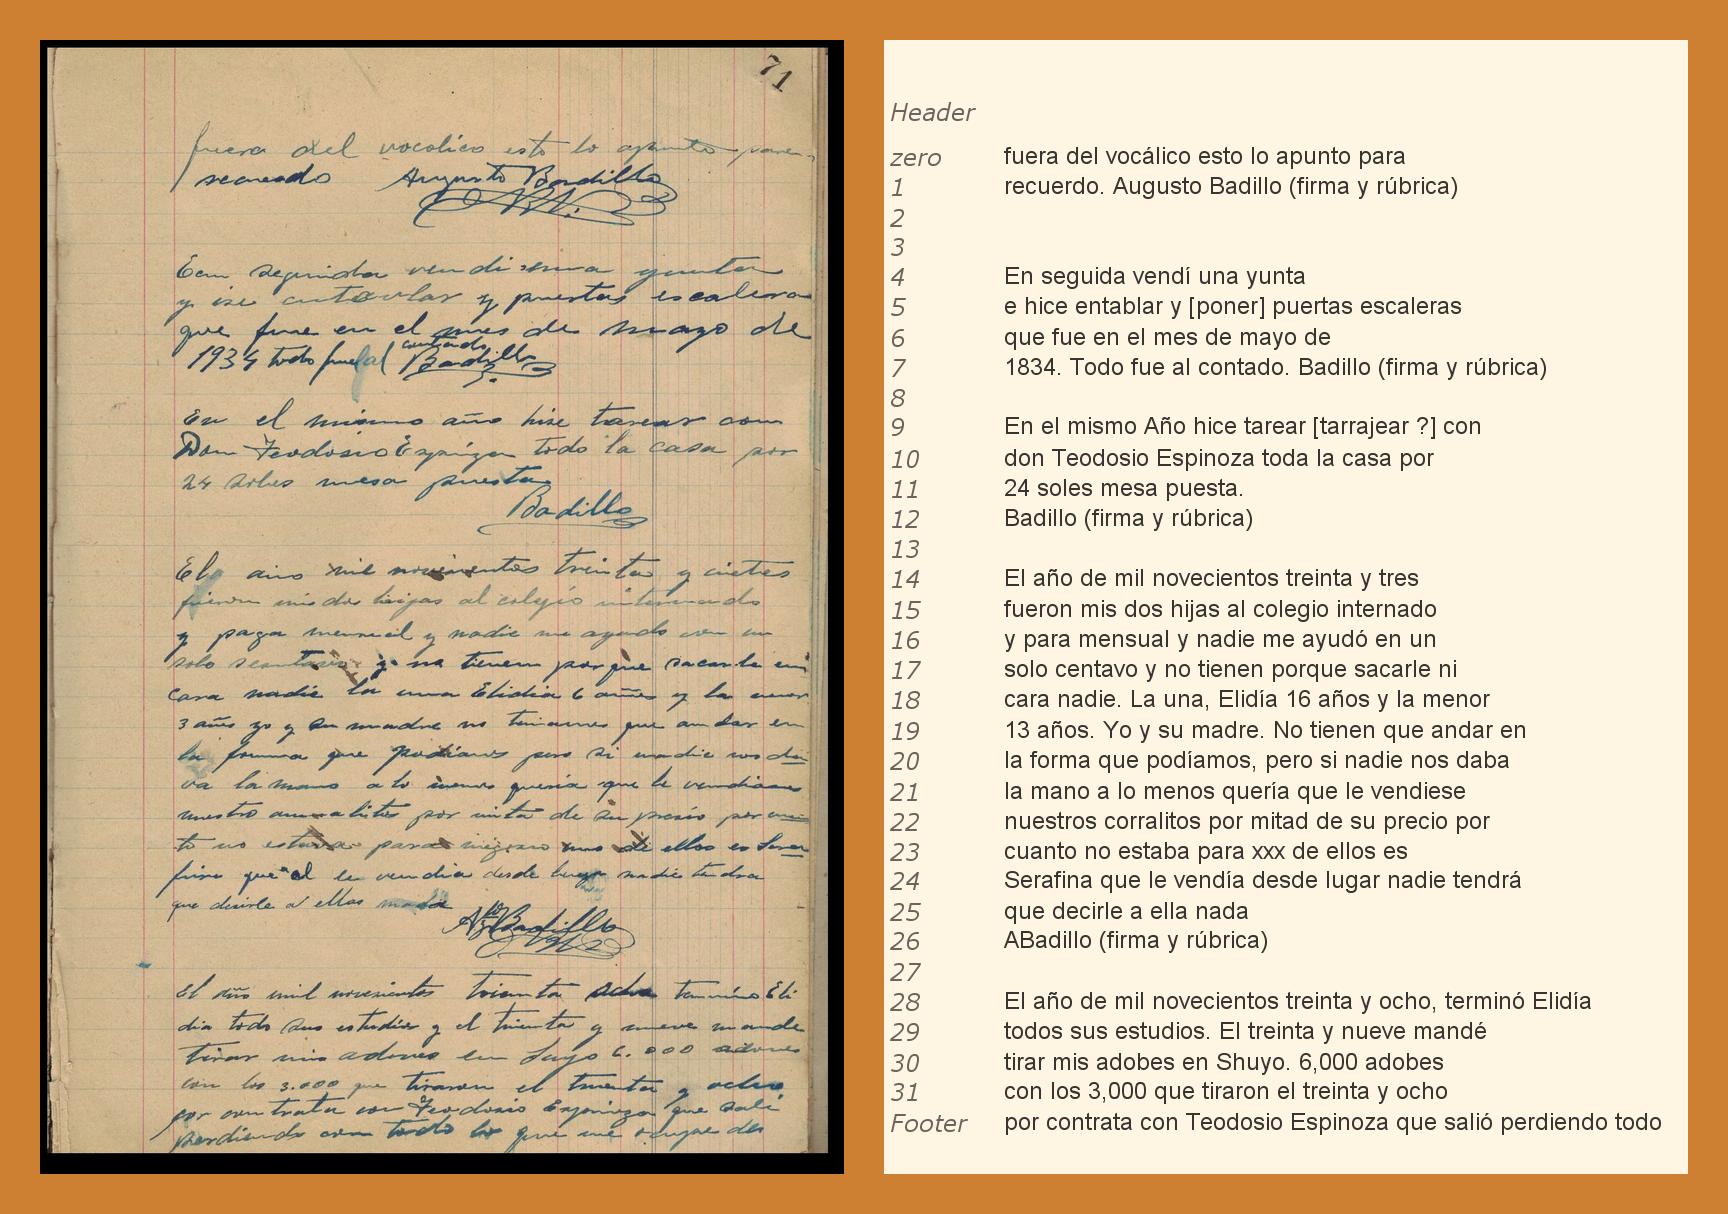 71
fuera del vocolico esto lo apunto para
recuerdo Augusto Badillo
En seguida vendi una yunta
y ise entavlar y puertas escaleras
que fue en el mes de mayo de
1934 todo fue al contado Badillo
En el mismo año hise tarear con
Don Teodosio Espinoza todo la casa por
24 soles mesa puesta
Badillo
El año mil novecientos treinta y
fueron mis dos hijas al colegio internado
y paga mensual y nadie me ayudo con un
solo sentavo y no tienen por que sacarle en
cara nadie la una Elidia 6 años y la menor
3 años yo y su madre no teniamos que andar en
la forma que podiamos pero si nadie nos da
va la mano a lo menos queria que le vendiamos
nuestro por mita de su presio por
to no estava para uno de ellos es Sera
fina que el le vendia desde luego nadie tendra
que desirle a ellas nada
Badillo
El año mil novecientos treinta ocho termino Eli
dia todo sus estudios y el treinta y nueve mande
tirar mis adoves en Suyo 6.000 adoves
con los 3.000 que tiraron el treinta y ocho
por contrata con Teodosio Espinoza que sali
perdiendo con todo lo que me ocupe de
Header
zero fuera del vocálico esto lo apunto para
1 recuerdo. Augusto Badillo (firma y rúbrica)
2
3
4 En seguida vendí una yunta
5 e hice entablar y [poner] puertas escaleras
6 que fue en el mes de mayo de
7 1834. Todo fue al contado. Badillo (firma y rúbrica)
8
9 En el mismo Año hice tarear [tarrajear ?] con
10 don Teodosio Espinoza toda la casa por
11 24 soles mesa puesta.
12 Badillo (firma y rúbrica)
13
14 El año de mil novecientos treinta y tres
15 fueron mis dos hijas al colegio internado
16 y para mensual y nadie me ayudó en un
17 solo centavo y no tienen porque sacarle ni
18 cara nadie. La una, Elidía 16 años y la menor
19 13 años. Yo y su madre. No tienen que andar en
20 la forma que podíamos, pero si nadie nos daba
21 la mano a lo menos quería que le vendiese
22 nuestros corralitos por mitad de su precio por
23 cuanto no estaba para xxx de ellos es
24 Serafina que le vendía desde lugar nadie tendrá
25 que decirle a ella nada
26 ABadillo (firma y rúbrica)
27
28 El año de mil novecientos treinta y ocho, terminó Elidía
29 todos sus estudios. El treinta y nueve mandé
30 tirar mis adobes en Shuyo. 6,000 adobes
31 con los 3,000 que tiraron el treinta y ocho
Footer por contrata con Teodosio Espinoza que salió perdiendo todo